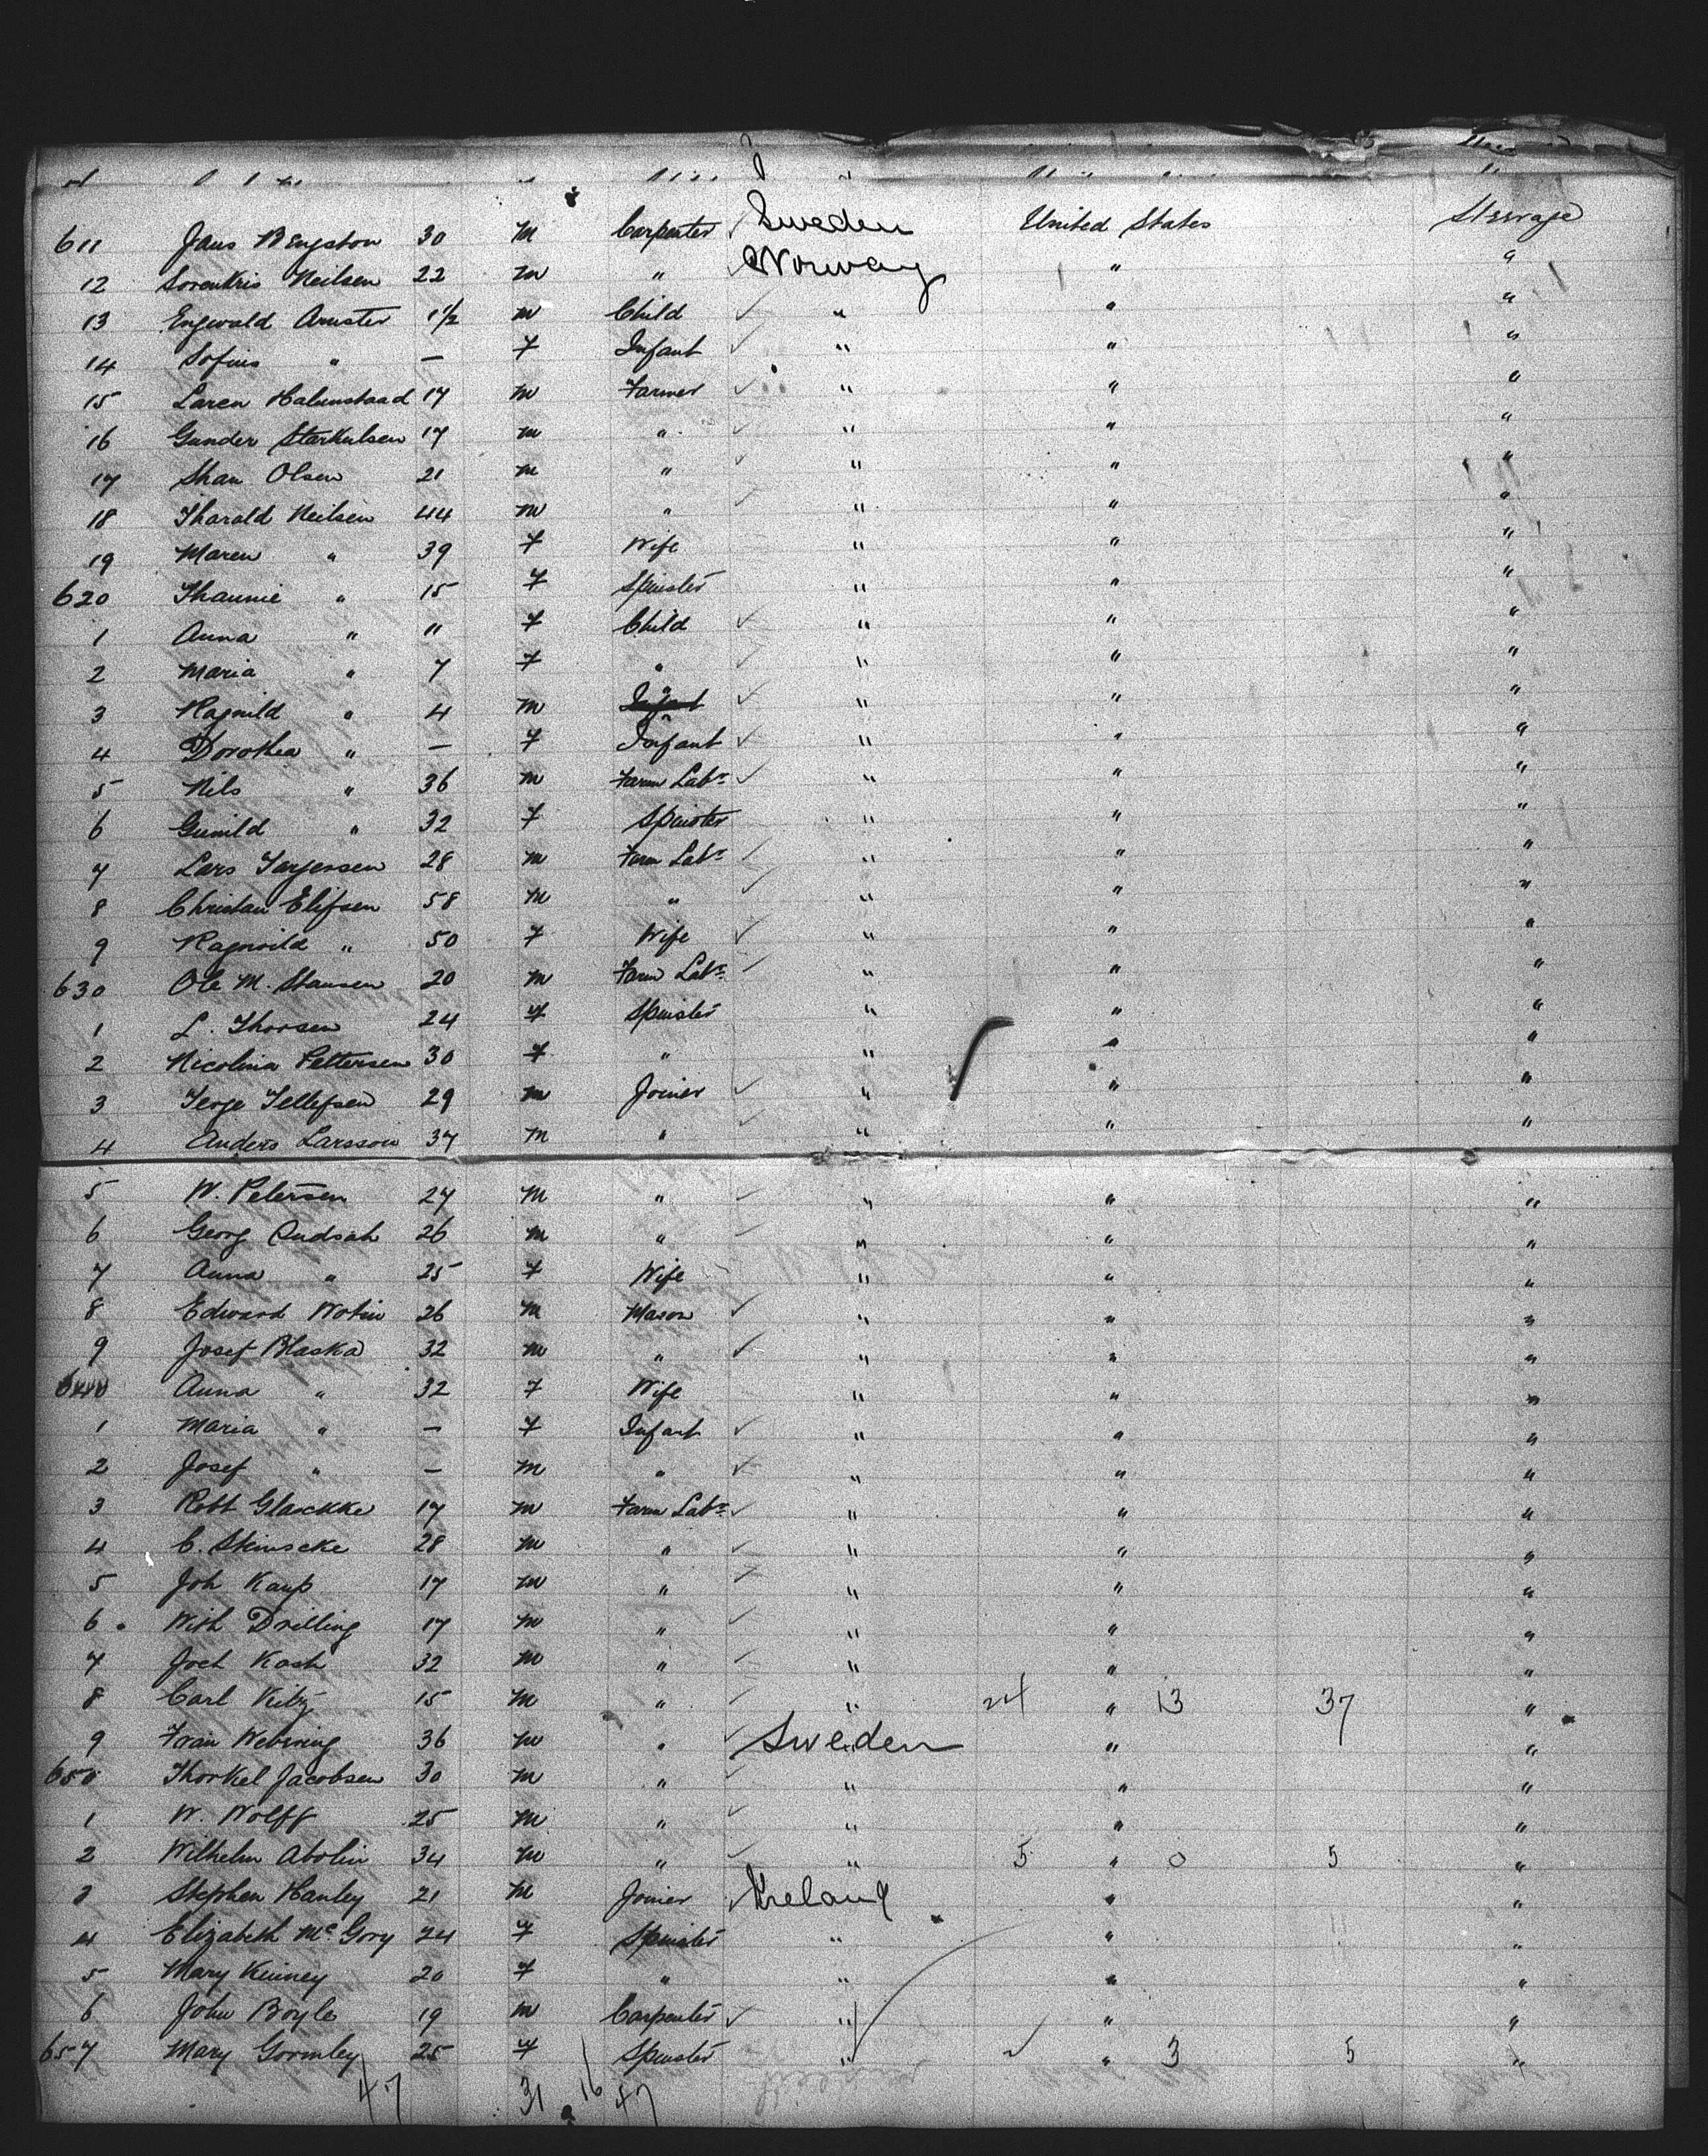 611 Jans Bengston 30 M Carpenter Sweden United States Steerage
12 Sorenkris Neilsen 22 m " Norway " "
13 Engwald Aruster 1½ m Child " " "
14 Sofius " — F Infant " " "
15 Laren Halumstaad 17 m Farmer " " "
16 Gunder Starkulsen 17 m " " " "
17 Shan Olsen 21 m " " " "
18 Tharald Neilsen 44 m " " " "
19 Maren " 39 F Wife " " "
620 Thaunie " 15 F Spinster " " "
1 Anna " 11 F Child " " "
2 Maria " 7 F " " " "
3 Ragnild " 4 m " " " "
4 Dorothea " — F Infant " " "
5 Nils " 36 m Farm Labr " " "
6 Gunild " 32 F Spinster " " "
7 Lars Jorgensen 28 m Farm Labr " " "
8 Christan Elifsen 58 M " " " "
9 Ragnvild " 50 F Wife " " "
630 Ole M. Stausen 20 m Farm Labr " " "
1 L. Thorsen 24 F Spinster " " "
2 Nicolina Pettersen 30 F " " " "
3 Terge Tellefsen 29 m Joiner " " "
4 Anders Larsson 37 m " " " "
5 W. Petersen 27 m " " " "
6 Georg Dudsah 26 m " " " "
7 Anna " 25 F Wife " " "
8 Edward Wotin 26 m Mason " " "
9 Josef Blaska 32 m " " " "
640 Anna " 32 F Wife " " "
1 Maria " — F Infant " " "
2 Josef " — m " " " "
3 Robt Glackke 17 m Farm Labr " " "
4 C. Skinscke 28 m " " " "
5 Joh Kaup 17 m " " " "
6 With Drilling 17 m " " " "
7 Joch Kash 32 m " " " "
8 Carl Kitz 15 m " " 24 " 13 37 "
9 Fran Webwing 36 m " Sweden " "
650 Thorkel Jacobsen 30 m " " " "
1 W. Wolff 25 m " " " "
2 Wilhelm Abolin 34 m " " 5 " 0 5 "
3 Stephen Hanley 21 M Joiner Ireland " "
4 Elizabeth Mc Gory 24 F Spinster " " "
5 Mary Kinney 20 F " " " "
6 John Boyle 19 m Carpenter " " "
657 Mary Gormley 25 F Spinster " 2 " 3 5 "
47 31 16 47